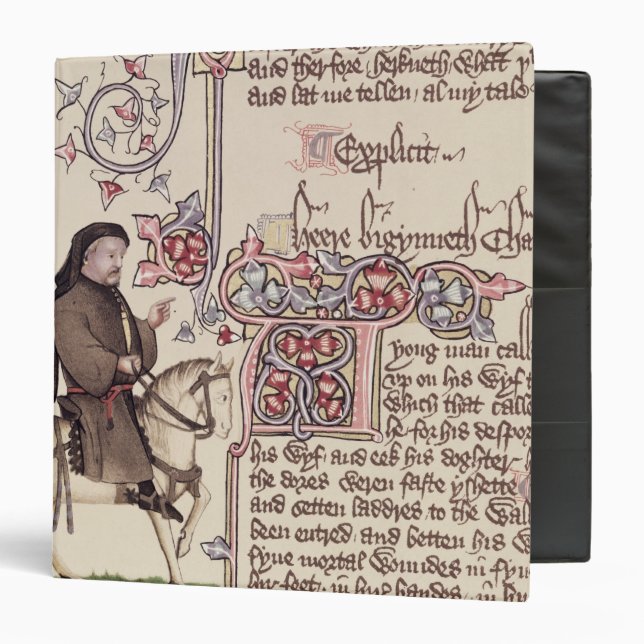 and therfore herkneth what y
and lat me tellen al my tale
Explicit
heere bigynneth Cha
A
yong man call
up on his wyf
which that calle
he for his despor
his wyf and eek his doghter
the dores weren faste yshette
and setten laddres to the Wal
been entred and betten his W
fyue mortal Woundes in fyu
hir feet in hire handes in hi